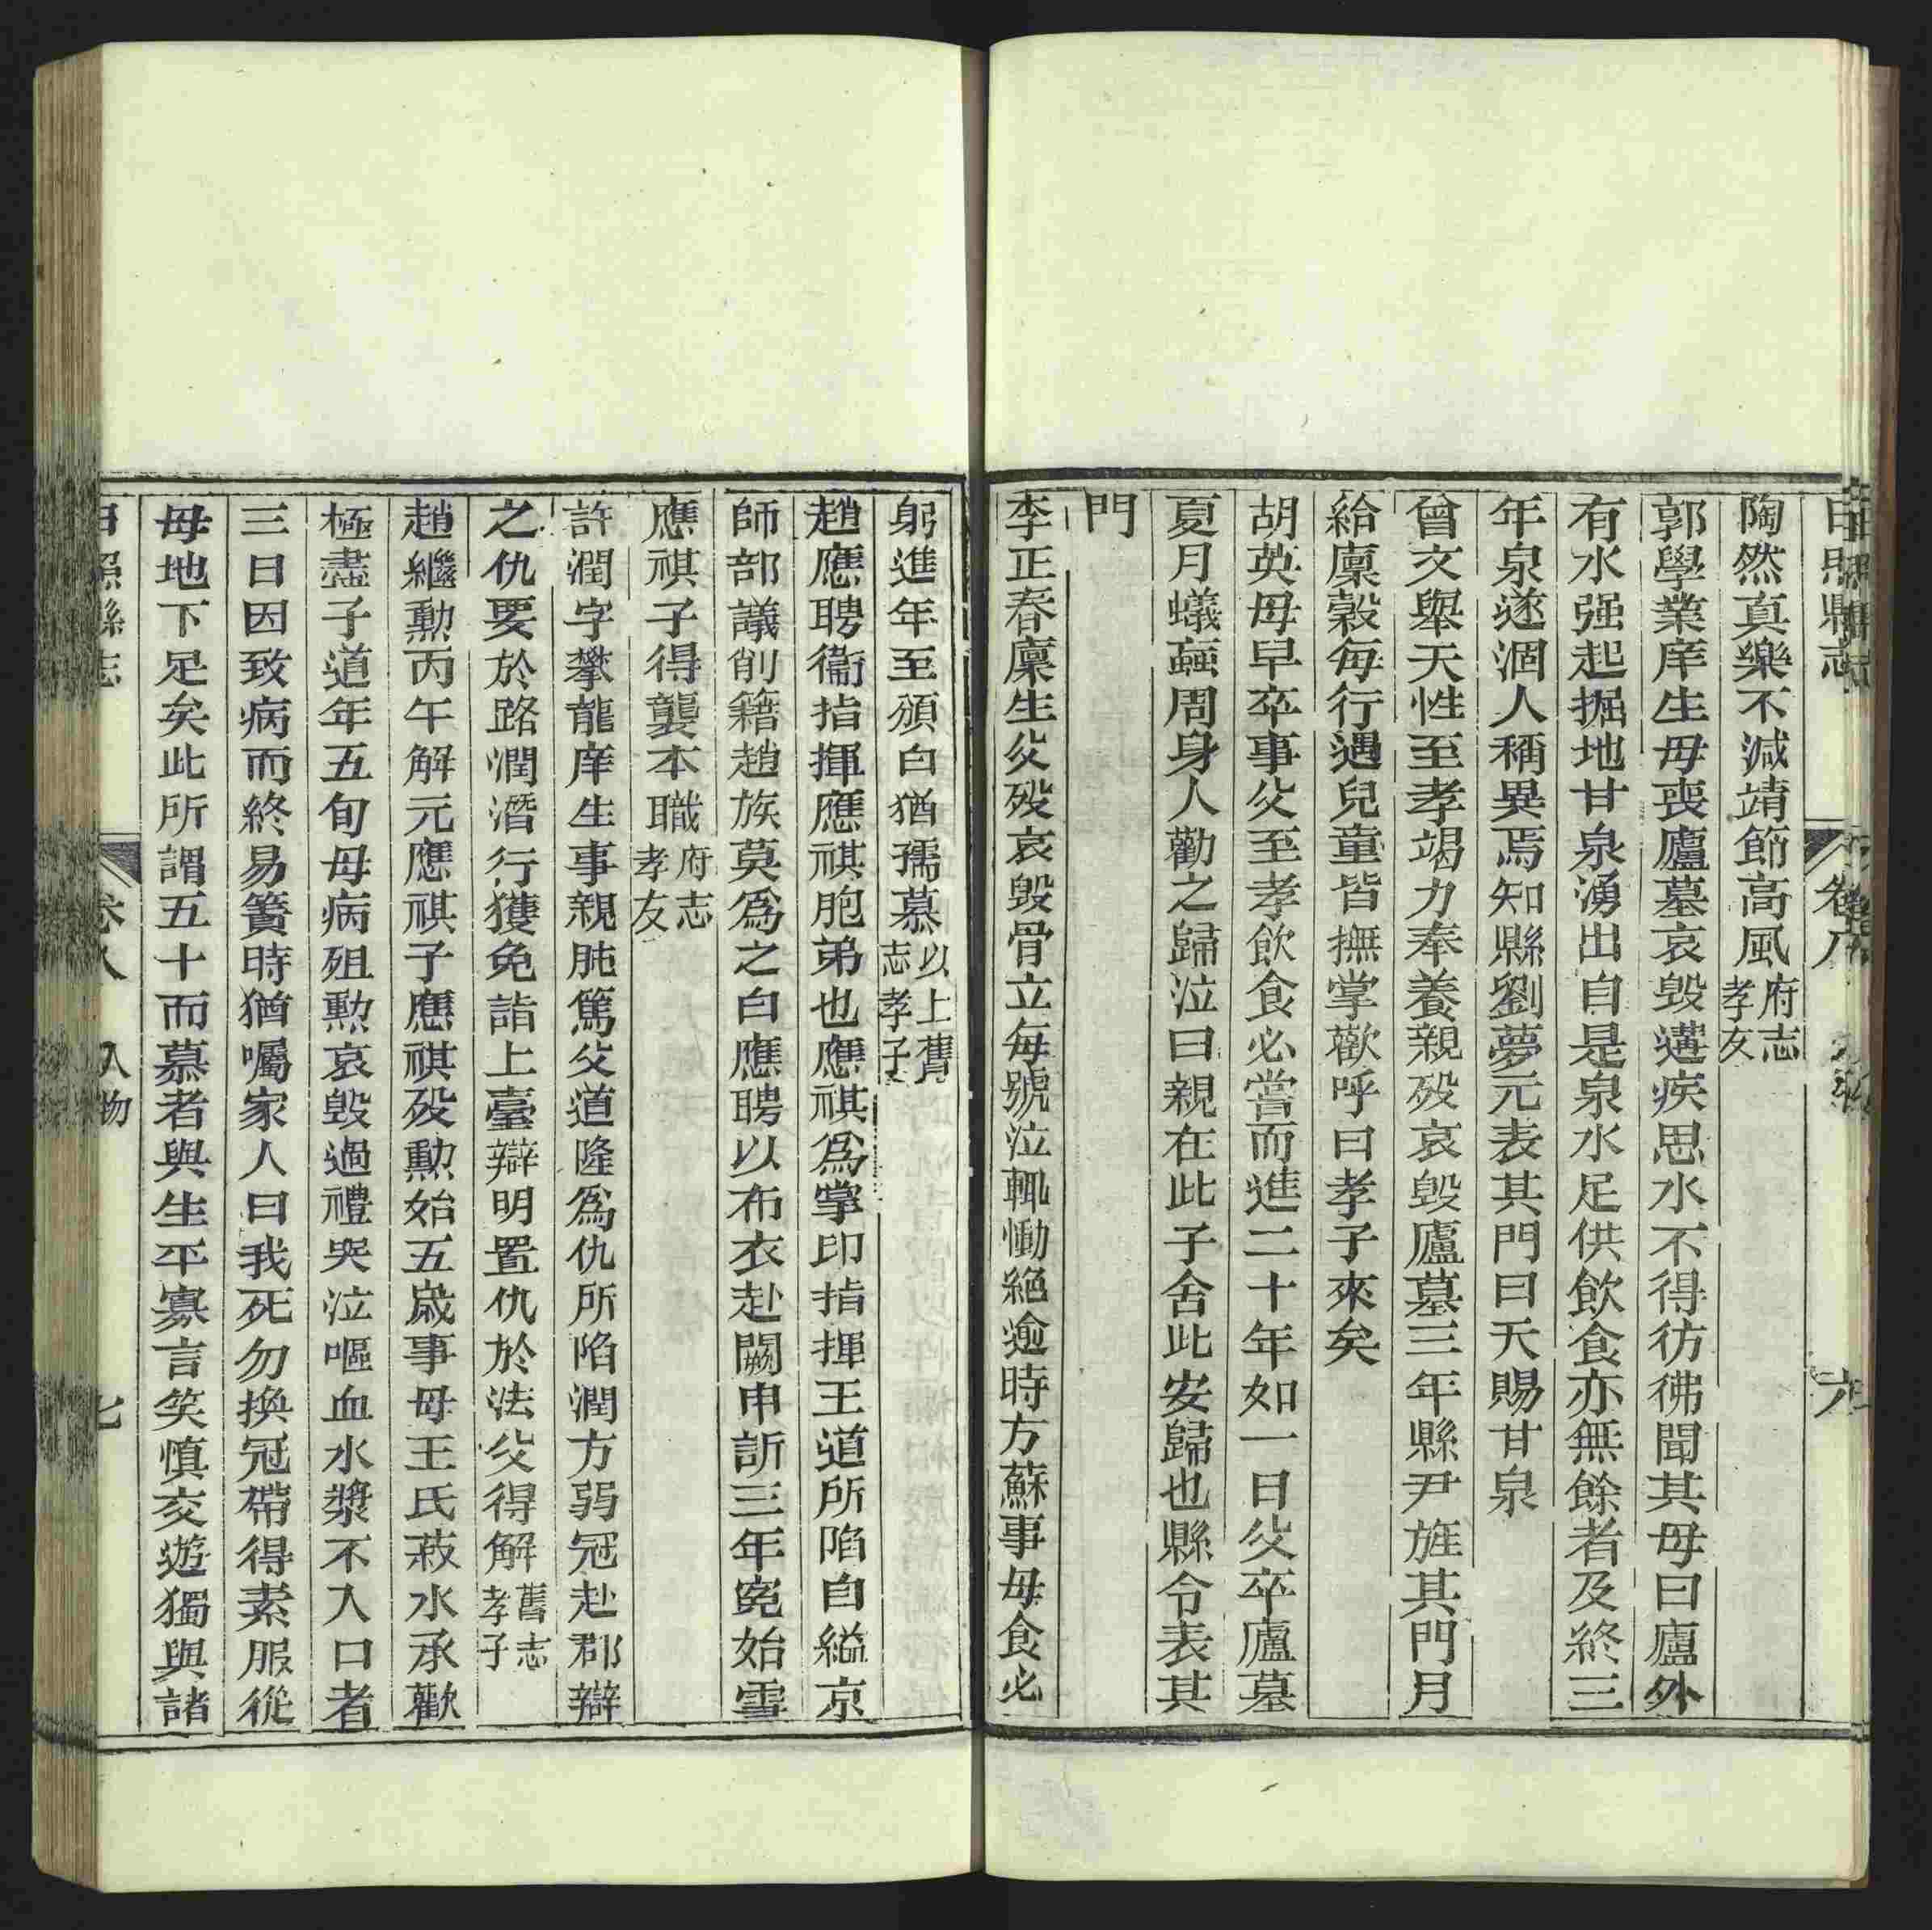 日照縣志
卷八
六
陶然真樂不減靖節高風府志孝友
郭學業庠生母喪廬墓哀毁遘疾思水不得彷彿聞其母曰廬外
有水强起掘地甘泉湧出自是泉水足供飲食亦無餘者及終三
年泉遂涸人稱異焉知縣劉夢元表其門曰天賜甘泉
曾文舉天性至孝竭力奉養親殁哀毁廬墓三年縣尹旌其門月
給廩穀每行遇兒童皆撫掌歡呼曰孝子來矣
胡英母早卒事父至孝飲食必嘗而進二十年如一日父卒廬墓
夏月蟻蝨周身人勸之歸泣曰親在此子舍此安歸也縣令表其
門
李正春廩生父殁哀毁骨立每號泣輒慟絕逾時方蘇事母食必
躬進年至頒白猶孺慕以上舊志孝子
趙應聘衞指揮應祺胞弟也應祺爲掌印指揮王道所陷自縊京
師部議削籍趙族莫爲之白應聘以布衣赴闕申訴三年寃始雪
應祺子得襲本職府志孝友
許潤字攀龍庠生事親肫篤父道隆爲仇所陷潤方弱冠赴郡辯
之仇要於路潤潛行獲免詣上臺辯明置仇於法父得解舊志孝子
趙繼勳丙午解元應祺子應祺殁勳始五歲事母王氏菽水承歡
極盡子道年五旬母病殂勳哀毁過禮哭泣嘔血水漿不入口者
三日因致病而終易簀時猶囑家人曰我死勿換冠帶得素服從
母地下足矣此所謂五十而慕者與生平寡言笑慎交遊獨與諸
日照縣志
卷八
人物
七